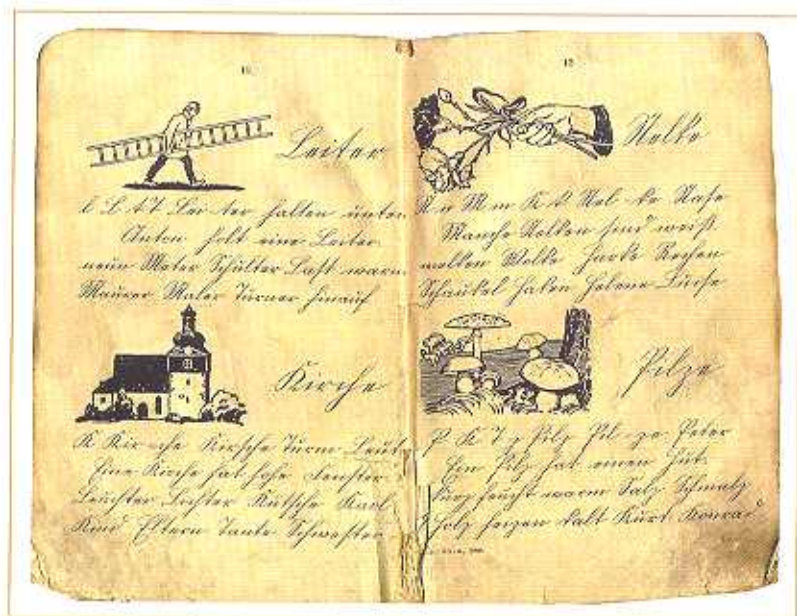 Leiter
l L t T Lei-ter halten unten
Anton holt eine Leiter.
neun Meter Schulter Last warm
Maurer Maler Turner hinauf
Kirche
K Kir-che Kirsche Turm Leute
Eine Kirche hat hohe Fenster.
Leuchter Tochter Kutsche Karl
Kind Eltern Tante Schwester
13
Nelke
N n M m K k Nel-ke Nase
Manche Nelken sind weiß.
melken Wolke Harke Rechen
Schaukel Haken Helene Luise
Pilze
P K T z Pilz Pil-ze Peter
Ein Pilz hat einen Hut.
kurz feucht warm Salz Schmalz
Holz heizen kalt Kurt Konrad